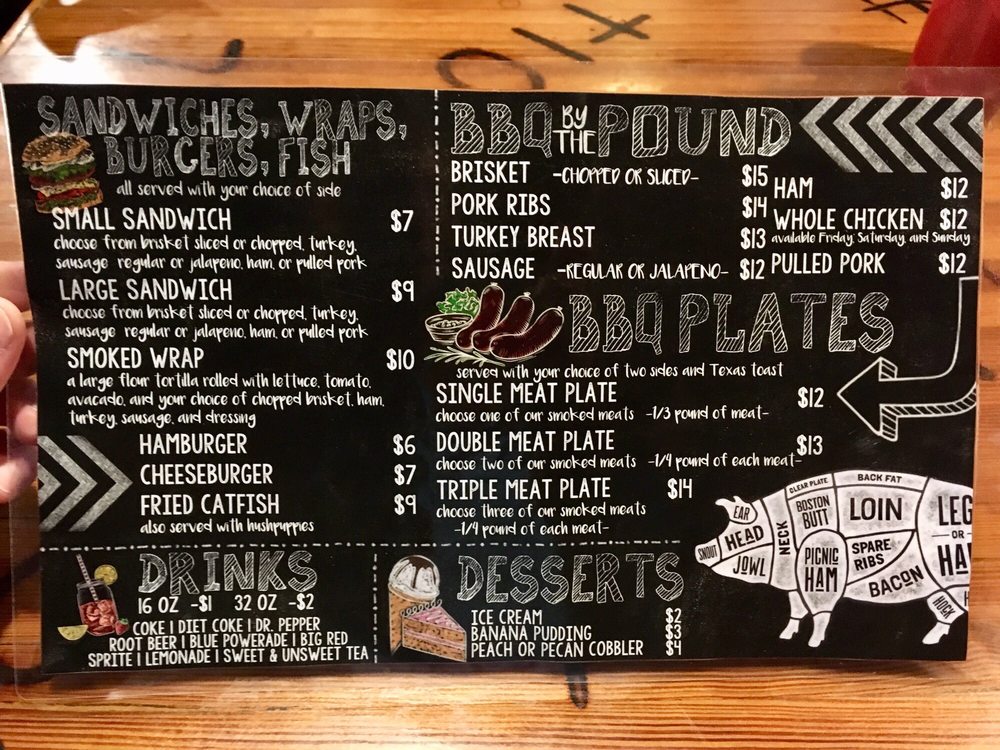 SANDWICHES, WRAPS,
BURGERS, FISH
all served with your choice of side
SMALL SANDWICH $7
choose from brisket sliced or chopped, turkey,
sausage regular or jalapeno, ham, or pulled pork
LARGE SANDWICH $9
choose from brisket sliced or chopped, turkey,
sausage regular or jalapeno, ham, or pulled pork
SMOKED WRAP $10
a large flour tortilla rolled with lettuce, tomato,
avacado, and your choice of chopped brisket, ham,
turkey, sausage, and dressing
HAMBURGER $6
CHEESEBURGER $7
FRIED CATFISH $9
also served with hushpuppies
DRINKS
16 OZ -$1 32 OZ -$2
COKE | DIET COKE | DR. PEPPER
ROOT BEER | BLUE POWERADE | BIG RED
SPRITE | LEMONADE | SWEET & UNSWEET TEA
BBQ BY THE POUND
BRISKET -CHOPPED OR SLICED- $15
PORK RIBS $14
TURKEY BREAST $13
SAUSAGE -REGULAR OR JALAPENO- $12
HAM $12
WHOLE CHICKEN $12
available Friday, Saturday, and Sunday
PULLED PORK $12
BBQ PLATES
served with your choice of two sides and Texas toast
SINGLE MEAT PLATE $12
choose one of our smoked meats -1/3 pound of meat-
DOUBLE MEAT PLATE $13
choose two of our smoked meats -1/4 pound of each meat-
TRIPLE MEAT PLATE $14
choose three of our smoked meats
-1/4 pound of each meat-
DESSERTS
ICE CREAM $2
BANANA PUDDING $3
PEACH OR PECAN COBBLER $4
SNOUT
EAR
HEAD
JOWL
NECK
CLEAR PLATE
BACK FAT
BOSTON
BUTT
LOIN
PICNIC
HAM
SPARE
RIBS
BACON
LEG
OR
HA
HOCK
H